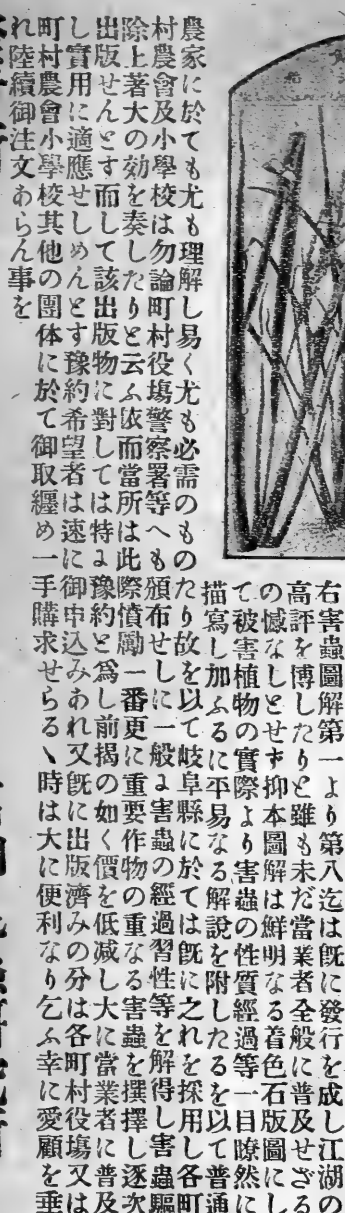 右害蟲圖解第一より第八迄は既に發行を成し江湖の
高評を博したりと雖も未だ當業者全般に普及せざる
の憾なしとせず抑本圖解は鮮明なる着色石版圖にし
て被害植物の實際より害蟲の性質經過等一目瞭然に
描寫し加ふるに平易なる解說を附したるを以て普通
農家に於ても尤も理解し易く尤も必需のものたり故を以て岐阜縣に於ては既に之れを採用し各町
村農會及小學校は勿論町村役塲警察署等へも頒布せしに一般ょ害蟲の經過習性等を解得し害蟲驅
除上著大の効を奏したりと云ふ依而當所は此際憤勵一番更に重要作物の重なる害蟲を撰擇し逐次
出版せんとす而して該出版物に對しては特ょ豫約と爲し前揭の如く價を低减し大に當業者に普及
し實用に適應せしめんとす豫約希望者は速に御申込みあれ又既に出版濟みの分は各町村役塲又は
町村農會小學校其他の團体に於て御取纒め一手購求せらるヽ時は大に便利なり乞ふ幸に愛顧を垂
れ陸續御注文あらん事を